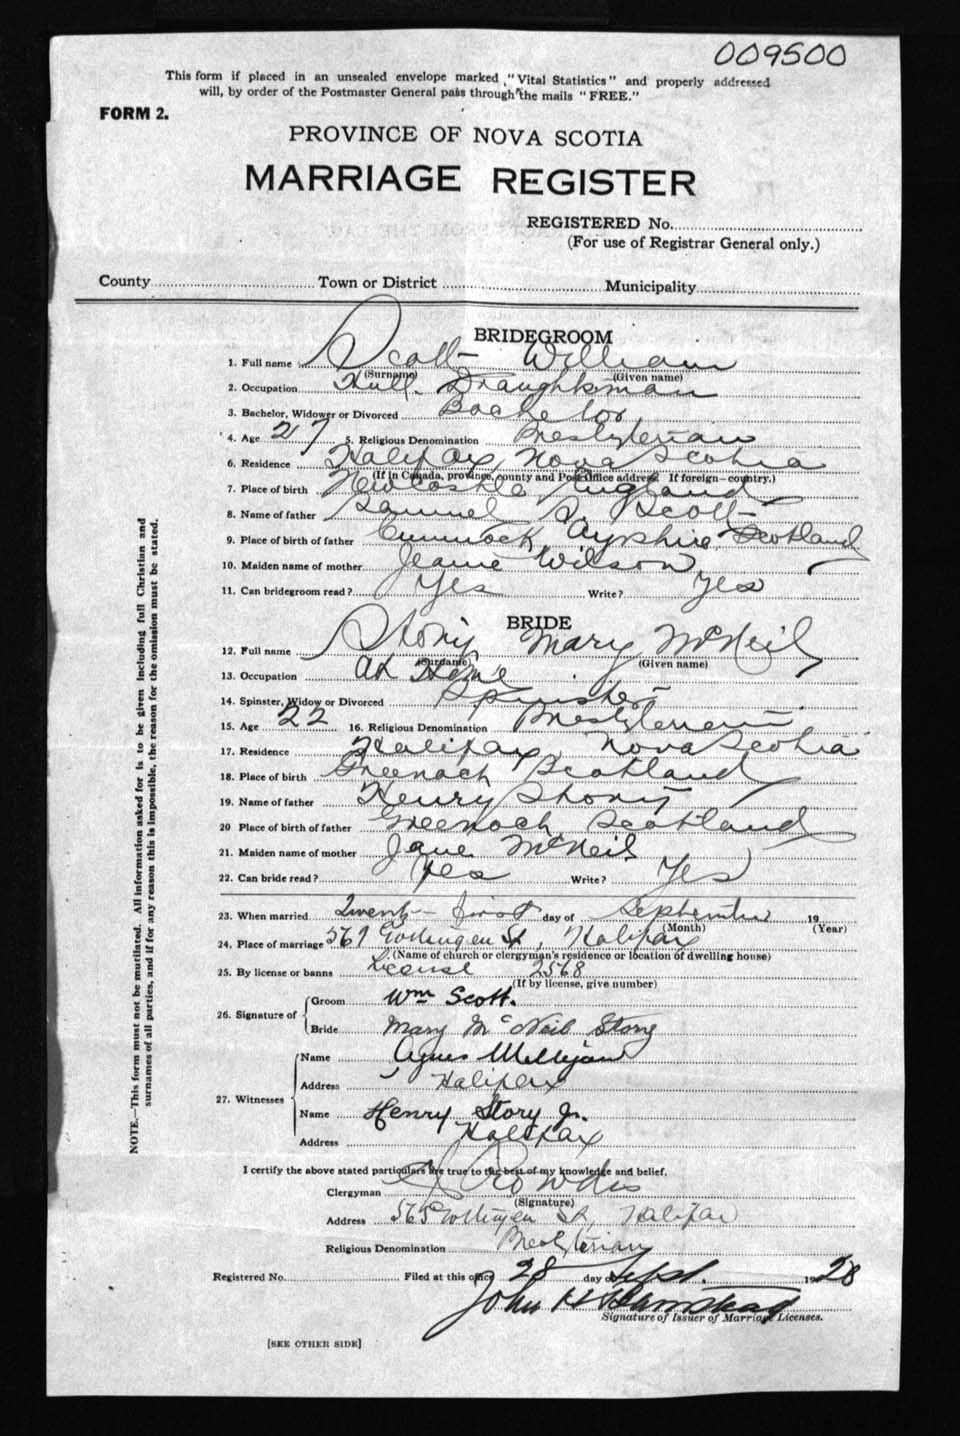 009500
This form if placed in an unsealed envelope marked "Vital Statistics" and properly addressed
will, by order of the Postmaster General pass through the mails "FREE."
FORM 2.
PROVINCE OF NOVA SCOTIA
MARRIAGE REGISTER
REGISTERED No.
(For use of Registrar General only.)
County Town or District Municipality
BRIDEGROOM
1. Full name Scott William
(Surname) (Given name)
2. Occupation Hull Draughtsman
3. Bachelor, Widower or Divorced Bachelor
4. Age 27 5. Religious Denomination Presbyterian
6. Residence Halifax, Nova Scotia
(If in Canada, province, county and Post Office address. If foreign—country.)
7. Place of birth Newcastle England
8. Name of father Samuel S. Scott
9. Place of birth of father Cumnock, Ayrshire, Scotland
10. Maiden name of mother Jeanie Wilson
11. Can bridegroom read? Yes Write? Yes
BRIDE
12. Full name Story Mary McNeil
(Surname) (Given name)
13. Occupation At Home
14. Spinster, Widow or Divorced Spinster
15. Age 22 16. Religious Denomination Presbyterian
17. Residence Halifax, Nova Scotia
18. Place of birth Greenock Scotland
19. Name of father Henry Story
20 Place of birth of father Greenock, Scotland
21. Maiden name of mother Jane McNeil
22. Can bride read? Yes Write? Yes
23. When married Twenty-first day of September 19
(Month) (Year)
24. Place of marriage Gottingen St, Halifax
(Name of church or clergyman's residence or location of dwelling house)
25. By license or banns License 2568
(If by license, give number)
26. Signature of
Groom Wm Scott.
Bride Mary McNeil Story
27. Witnesses
Name Agnes Milligan
Address Halifax
Name Henry Story Jr.
Address Halifax
I certify the above stated particulars are true to the best of my knowledge and belief.
Clergyman Crowdis
(Signature)
Address Gottingen St, Halifax
Religious Denomination Presbyterian
Registered No. Filed at this office 28 day of Sept. 1928
John H Barnstead
Signature of Issuer of Marriage Licenses.
[SEE OTHER SIDE]
NOTE.—This form must not be mutilated. All information asked for is to be given including full Christian and
surnames of all parties, and if for any reason this is impossible, the reason for the omission must be stated.